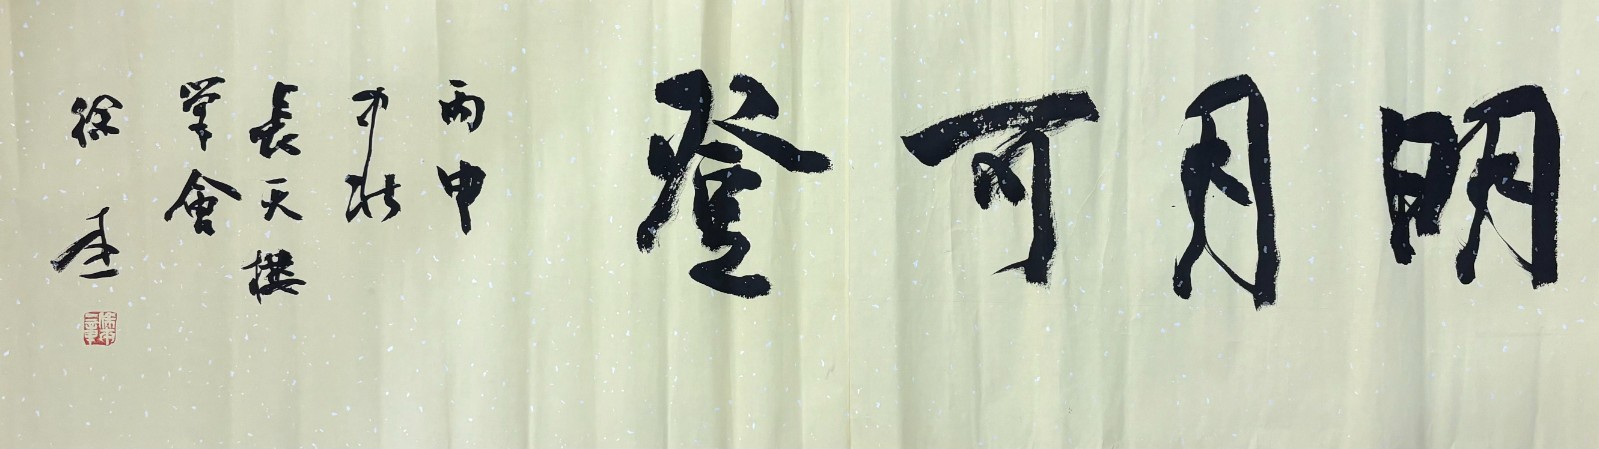 明月可登
丙申
中秋
長天樓
學會
徐本一